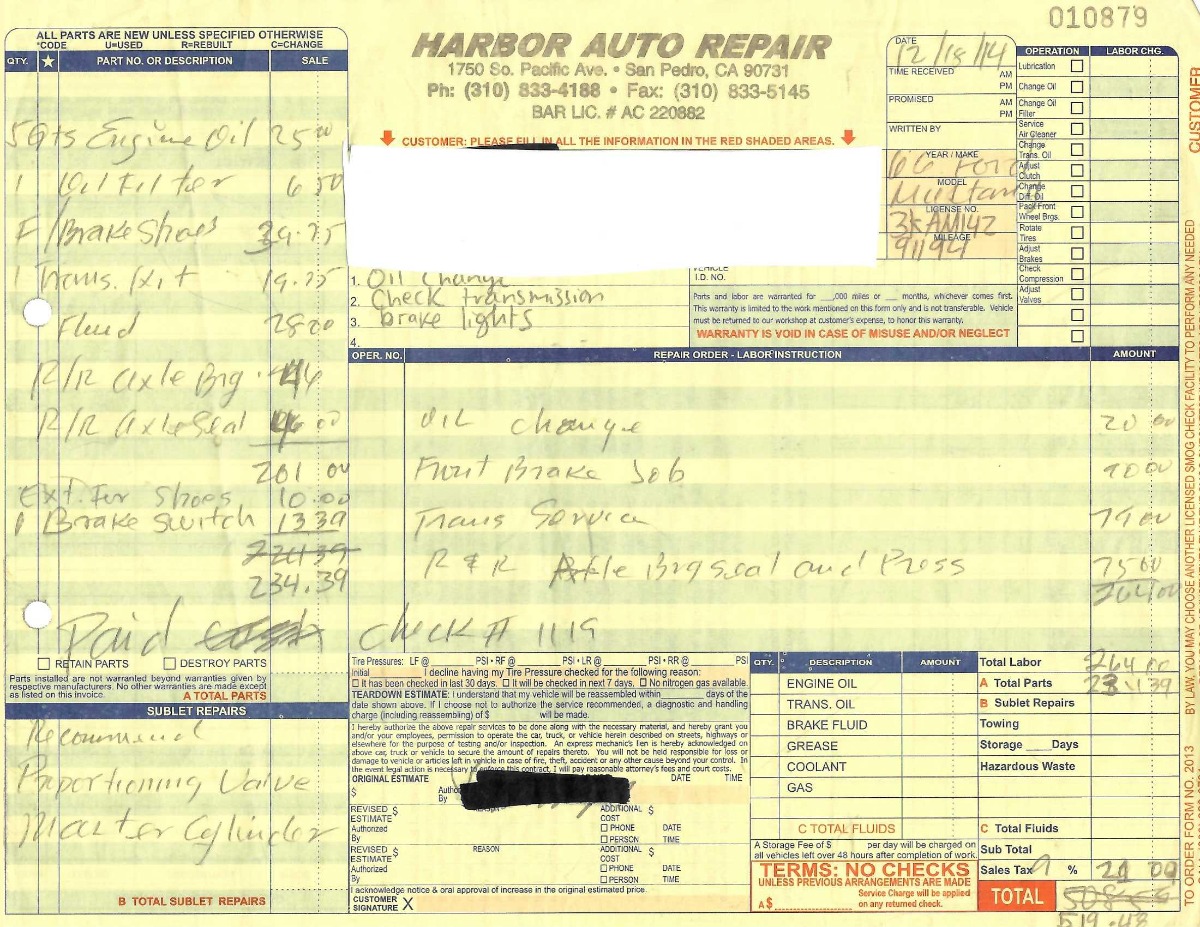 010879
ALL PARTS ARE NEW UNLESS SPECIFIED OTHERWISE
*CODE U=USED R=REBUILT C=CHANGE
QTY. ★ PART NO. OR DESCRIPTION SALE
5 Qts Engine Oil 25 00
1 Oil Filter 6 50
F/Brake Shoes 39.75
1 Trans. Kit 19.75
Fluid 28 00
R/R Axle Brg. 44
R/R Axle Seal
201 00
Ext. For Shoes 10.00
1 Brake Switch 13 39
234.39
Paid Check # 1119
RETAIN PARTS DESTROY PARTS
Parts installed are not warranted beyond warranties given by
respective manufacturers. No other warranties are made except
as listed on this invoice.
A TOTAL PARTS
SUBLET REPAIRS
Recommend
Proportioning Valve
Master Cylinder
B TOTAL SUBLET REPAIRS
HARBOR AUTO REPAIR
1750 So. Pacific Ave. • San Pedro, CA 90731
Ph: (310) 833-4188 • Fax: (310) 833-5145
BAR LIC. # AC 220882
CUSTOMER: PLEASE FILL IN ALL THE INFORMATION IN THE RED SHADED AREAS.
DATE 12/18/14
TIME RECEIVED AM PM
PROMISED AM PM
WRITTEN BY
YEAR / MAKE
66 Ford
MODEL
Mustang
LICENSE NO.
MILEAGE
91194
VEHICLE I.D. NO.
1. Oil Change
2. Check transmission
3. brake lights
4.
Parts and labor are warranted for ___,000 miles or ___ months, whichever comes first.
This warranty is limited to the work mentioned on this form only and is not transferable. Vehicle
must be returned to our workshop at customer's expense, to honor this warranty.
WARRANTY IS VOID IN CASE OF MISUSE AND/OR NEGLECT
OPERATION LABOR CHG.
Lubrication
Change Oil
Change Oil Filter
Service Air Cleaner
Change Trans. Oil
Adjust Clutch
Change Diff. Oil
Pack Front Wheel Brgs.
Rotate Tires
Adjust Brakes
Check Compression
Adjust Valves
OPER. NO. REPAIR ORDER - LABOR INSTRUCTION AMOUNT
Oil Change 20 00
Front Brake Job 90 00
Trans Service 79 00
R & R Axle Brg seal and Press 75 00
264 00
Tire Pressures: LF @ PSI • RF @ PSI • LR @ PSI • RR @ PSI
Initial I decline having my Tire Pressure checked for the following reason:
It has been checked in last 30 days. It will be checked in next 7 days. No nitrogen gas available.
TEARDOWN ESTIMATE: I understand that my vehicle will be reassembled within days of the
date shown above. If I choose not to authorize the service recommended, a diagnostic and handling
charge (including reassembling) of $ will be made.
I hereby authorize the above repair services to be done along with the necessary material, and hereby grant you
and/or your employees, permission to operate the car, truck, or vehicle herein described on streets, highways or
elsewhere for the purpose of testing and/or inspection. An express mechanic's lien is hereby acknowledged on
above car, truck or vehicle to secure the amount of repairs thereto. You will not be held responsible for loss or
damage to vehicle or articles left in vehicle in case of fire, theft, accident or any other cause beyond your control. In
the event legal action is necessary to enforce this contract, I will pay reasonable attorney's fees and court costs.
ORIGINAL ESTIMATE DATE TIME
$ By
REVISED ESTIMATE $ ADDITIONAL COST $
Authorized By PHONE DATE
PERSON TIME
REVISED ESTIMATE $ REASON ADDITIONAL COST $
Authorized By PHONE DATE
PERSON TIME
I acknowledge notice & oral approval of increase in the original estimated price.
CUSTOMER SIGNATURE X
QTY. DESCRIPTION AMOUNT
ENGINE OIL
TRANS. OIL
BRAKE FLUID
GREASE
COOLANT
GAS
C TOTAL FLUIDS
A Storage Fee of $ per day will be charged on
all vehicles left over 48 hours after completion of work.
TERMS: NO CHECKS
UNLESS PREVIOUS ARRANGEMENTS ARE MADE
Service Charge will be applied
on any returned check.
A $
Total Labor 264 00
A Total Parts
B Sublet Repairs
Towing
Storage ____Days
Hazardous Waste
C Total Fluids
Sub Total
Sales Tax 9 % 21 00
TOTAL
519.48
CUSTOMER
BY LAW, YOU MAY CHOOSE ANOTHER LICENSED SMOG CHECK FACILITY TO PERFORM ANY NEEDED
TO ORDER FORM NO. 2013